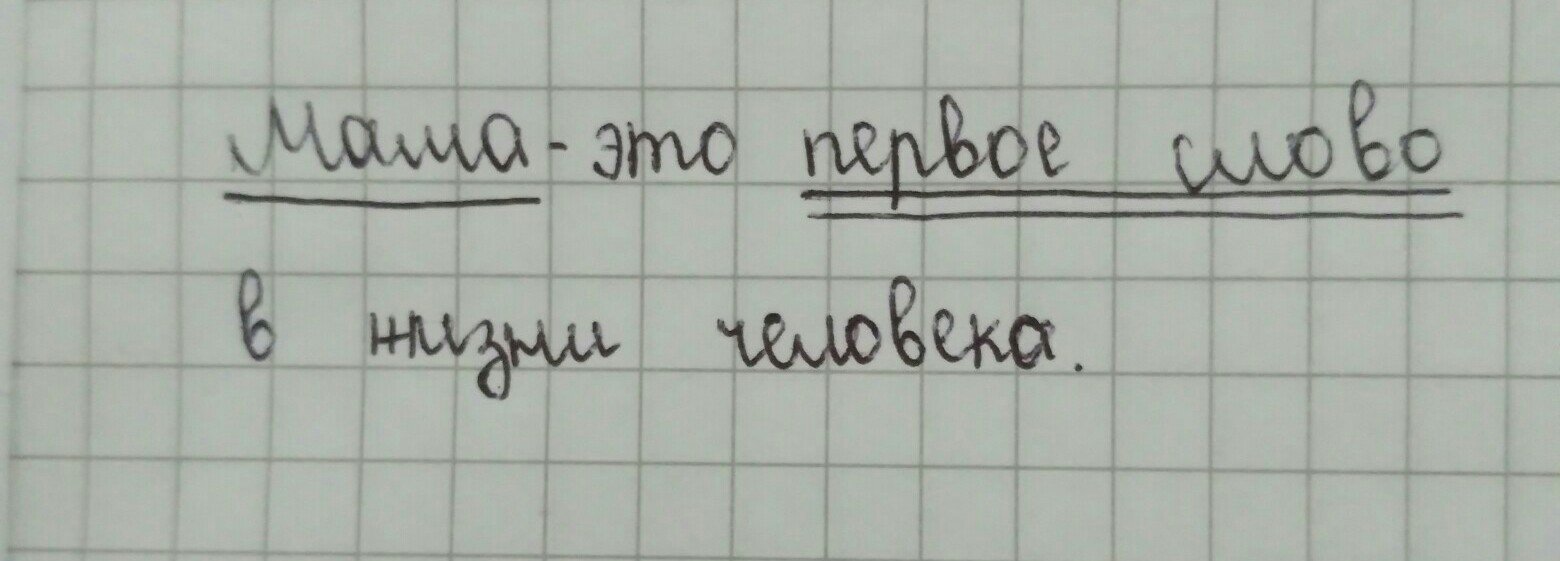 Мама - это первое слово
в жизни человека.